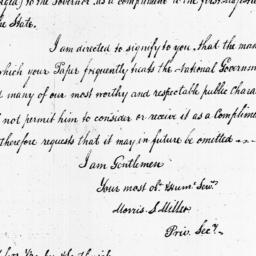 to the Governor as a compliment to the first
the State.
I am directed to signify to you, that the man
which your Paper frequently treats the National Governm
many of our most worthy and respectable public Chara
not permit him to consider or receive it as a Complime
therefore requests that it may in future be omitted —
I am Gentlemen
Your most obt. Huml. Servt.
Morris S. Miller
Priv. Secy.